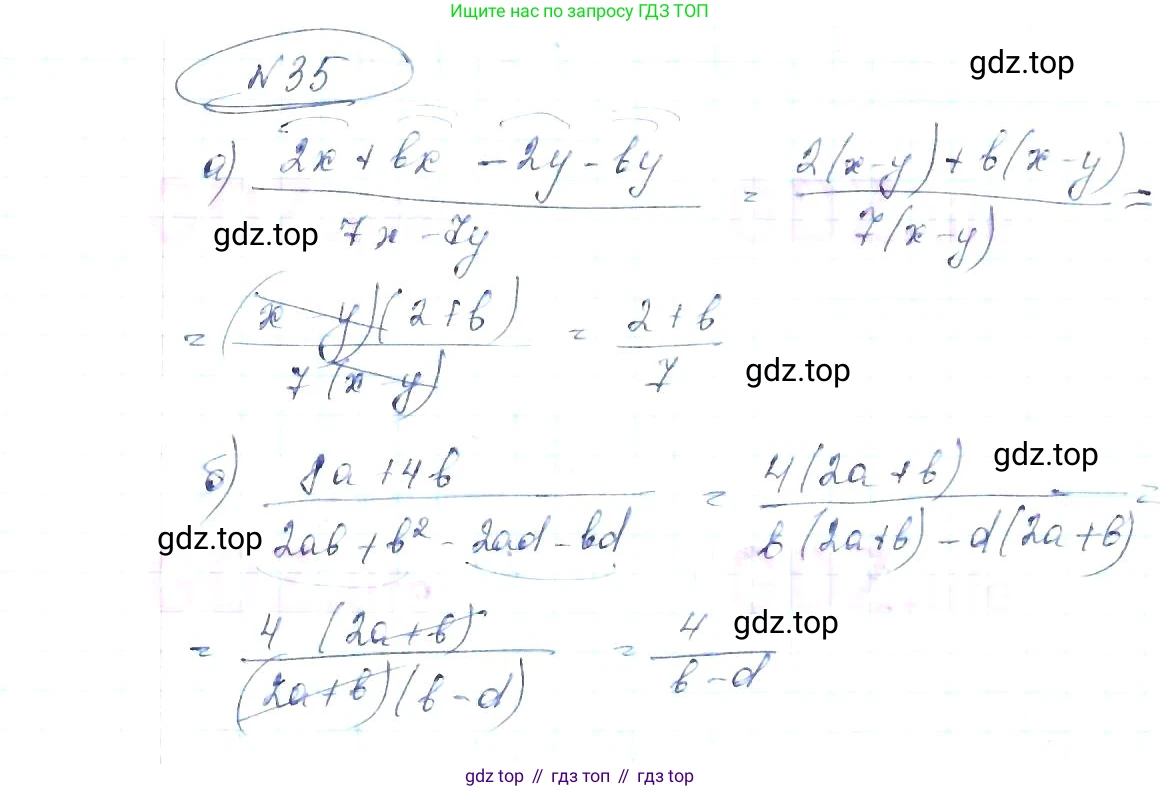 Ищите нас по запросу ГДЗ ТОП
№35
gdz.top
а) (2x + bx - 2y - by)/(7x - 7y) = (2(x-y) + b(x-y))/(7(x-y)) =
gdz.top
= ((x-y)(2+b))/(7(x-y)) = (2+b)/7
gdz.top
б) (8a + 4b)/(2ab + b² - 2ad - bd) = (4(2a+b))/(b(2a+b) - d(2a+b)) =
gdz.top
gdz.top
= (4(2a+b))/((2a+b)(b-d)) = 4/(b-d)
gdz.top
gdz top // гдз топ // gdz top